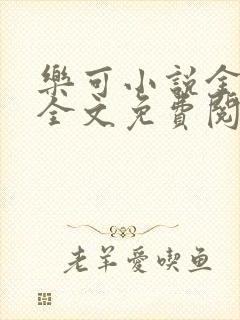 樂可小說全
全文免費閱
老羊愛喫鱼